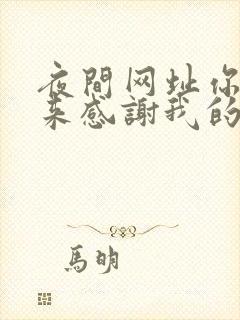 夜間网址你
来感謝我的
馬明